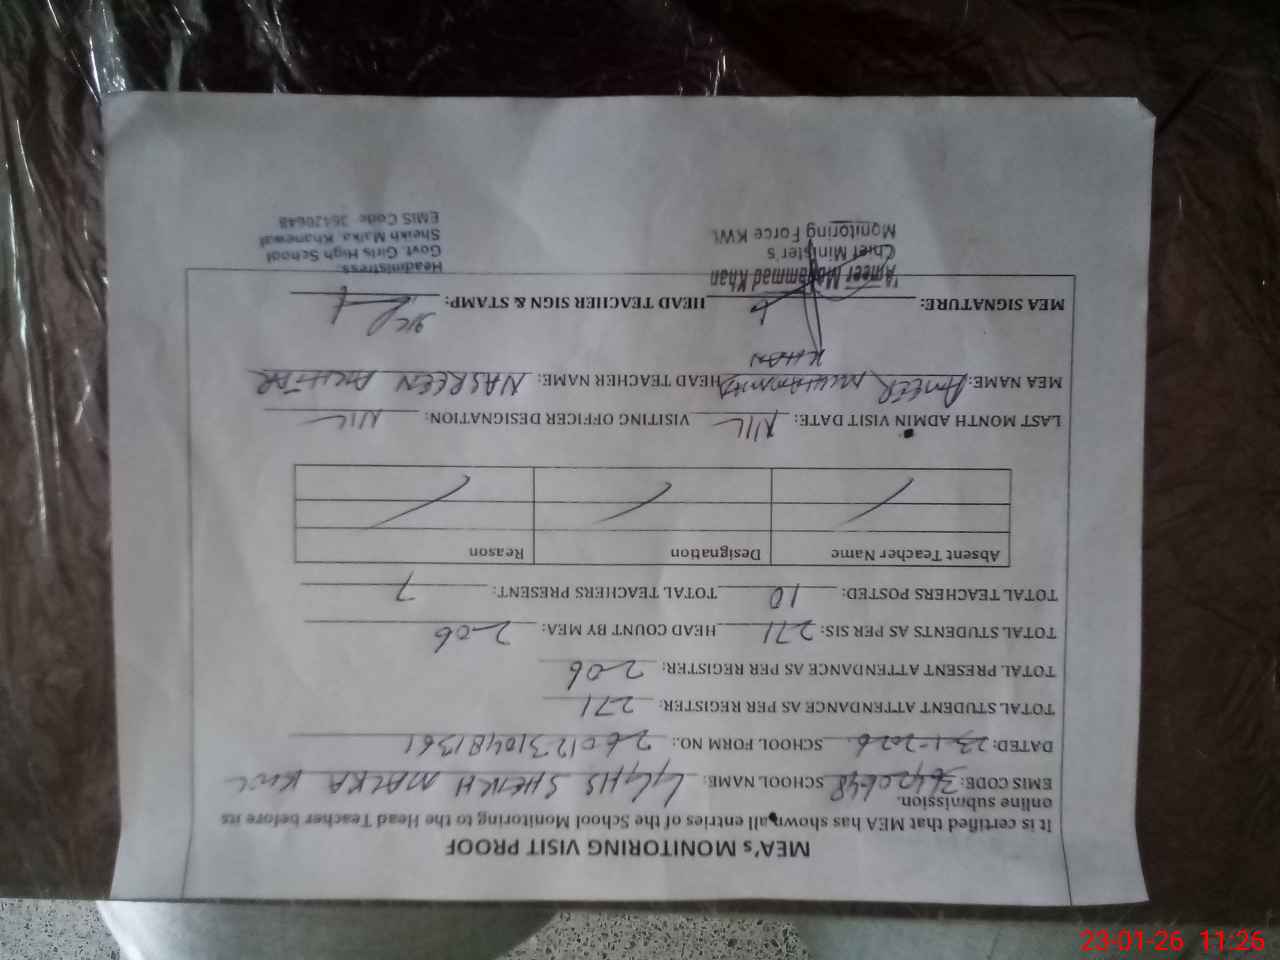 MEA's MONITORING VISIT PROOF
It is certified that MEA has shown all entries of the School Monitoring to the Head Teacher before its
online submission.
EMIS CODE: 36420648 SCHOOL NAME: GGHS SHEIKH MALKA KWL
DATED: 23-1-2026 SCHOOL FORM NO.: 26012310481361
TOTAL STUDENT ATTENDANCE AS PER REGISTER: 271
TOTAL PRESENT ATTENDANCE AS PER REGISTER: 206
TOTAL STUDENTS AS PER SIS: 271 HEAD COUNT BY MEA: 206
TOTAL TEACHERS POSTED: 10 TOTAL TEACHERS PRESENT: 7
Absent Teacher Name Designation Reason
LAST MONTH ADMIN VISIT DATE: NIL VISITING OFFICER DESIGNATION: NIL
MEA NAME: AMEER MUHAMMAD KHAN HEAD TEACHER NAME: NASREEN AKHTAR
MEA SIGNATURE: HEAD TEACHER SIGN & STAMP:
Ameer Mohammad Khan
Chief Minister's
Monitoring Force KWL
Headmistress
Govt. Girls High School
Sheikh Malka, Khanewal
EMIS Code 36420648
23-01-26 11:26